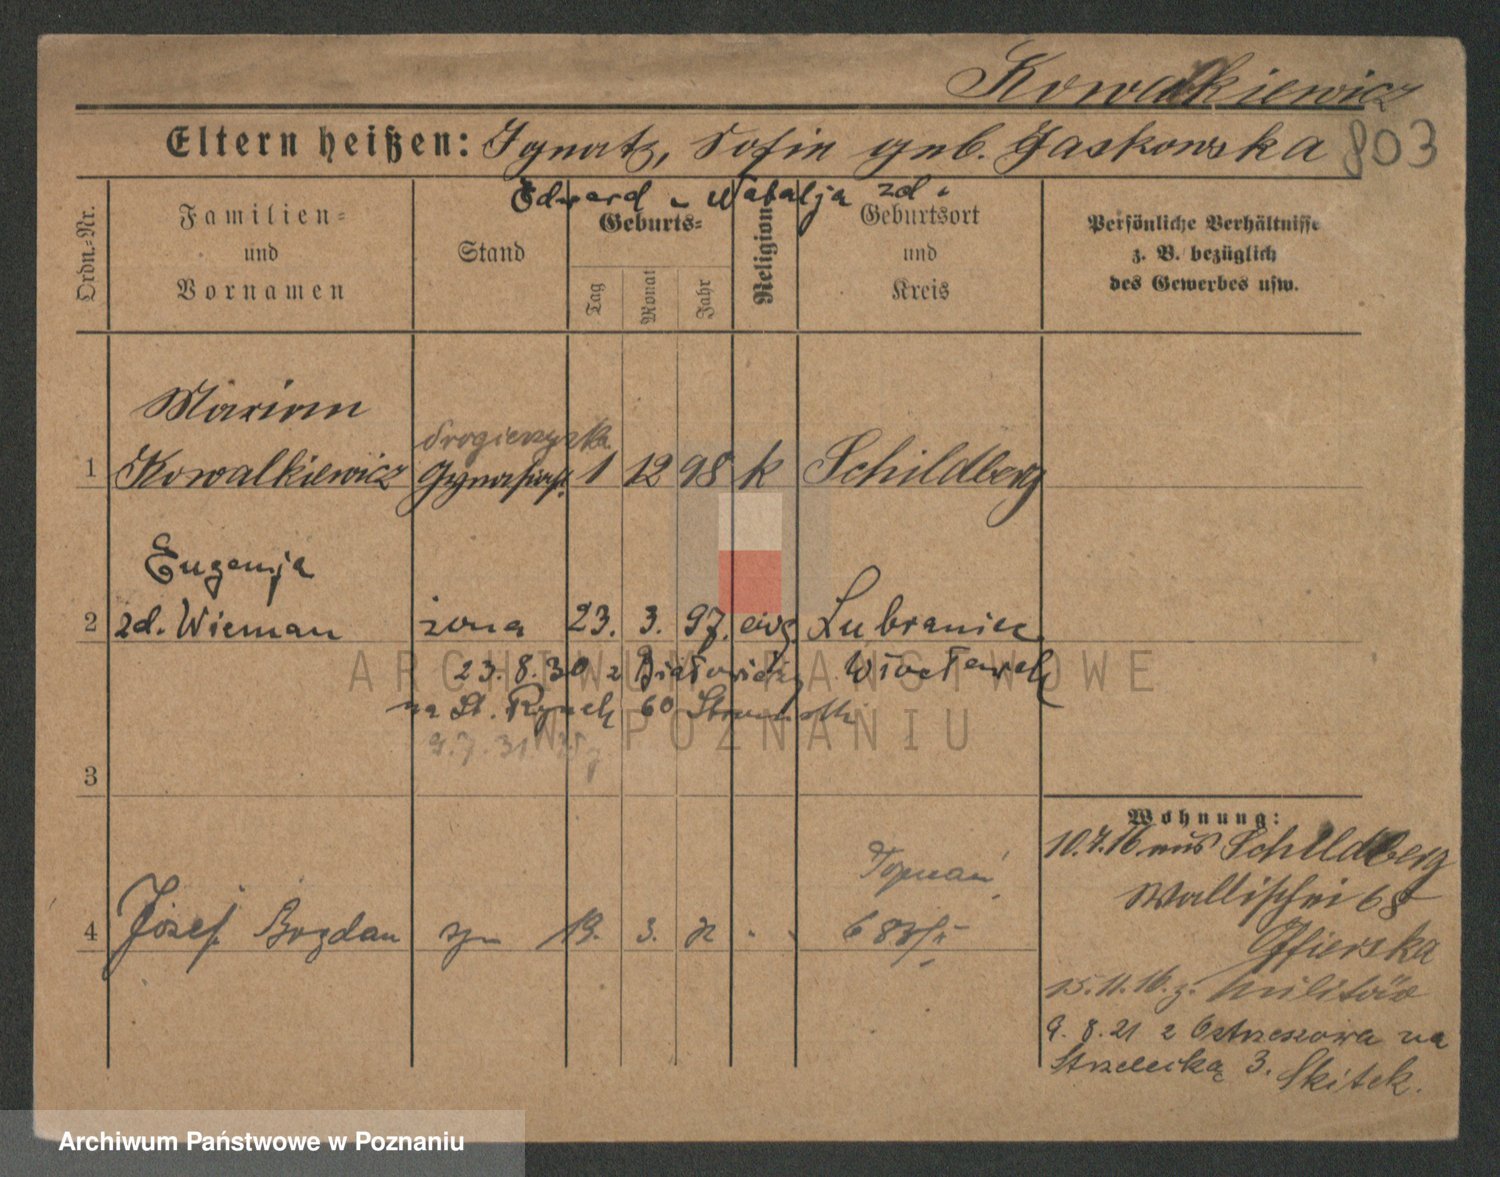 Kowalkiewicz
Eltern heißen: Ignatz, Sofie geb. Gaskowska 803
Edward u Natalja zd.
Ordn.-Nr.
Familien- und Vornamen
Stand
Geburts-
Tag
Monat
Jahr
Religion
Geburtsort und Kreis
Persönliche Verhältnisse z. B. bezüglich des Gewerbes usw.
Marian
drogierzysta
1 Kowalkiewicz Gymnasiast 1 12 98 k Schildberg
Eugenja
2 zd. Wieman żona 23. 3. 97. ewg. Lubraniec
23.8.30 z Białowieży Włocławek
na St. Rynek 60
9.7.31
3
Wohnung:
10.7.16 aus Schildberg
Poznań
Wallischei 68
4 Józef Bogdan syn 13. 3. 
15.11.16. z. Militär
9. 8. 21 z Ostrzeszowa na
Strzelecką 3. Skitek.
ARCHIWUM PAŃSTWOWE
W POZNANIU
Archiwum Państwowe w Poznaniu